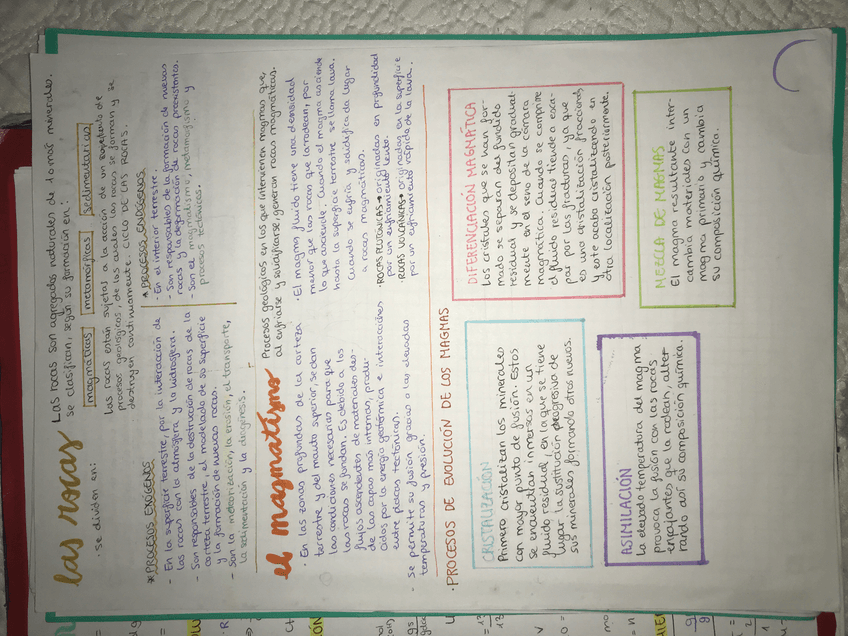 las rocas
Las rocas son agregados naturales de 1 o más minerales.
Se clasifican, según su formación en:
magmáticas metamórficas sedimentarias
Las rocas están sujetas a la acción de un conjunto de
procesos geológicos, de los cuales las rocas se forman y se
destruyen continuamente: CICLO DE LAS ROCAS.
· Se dividen en:
* PROCESOS EXÓGENOS
- En la superficie terrestre, por la interacción de
las rocas con la atmósfera y la hidrosfera.
- Son responsables de la destrucción de rocas de la
corteza terrestre, el modelado de su superficie
y la formación de nuevas rocas.
- Son la meteorización, la erosión, el transporte,
la sedimentación y la diagénesis.
* PROCESOS ENDÓGENOS
- En el interior terrestre.
- Son responsables de la formación de nuevas
rocas y la deformación de rocas preexistentes.
- Son el magmatismo, metamorfismo y
procesos tectónicos.
el magmatismo
Procesos geológicos en los que intervienen magmas que,
al enfriarse y solidificarse, generan rocas magmáticas.
· En las zonas profundas de la corteza
terrestre y del manto superior, se dan
las condiciones necesarias para que
las rocas se fundan. Es debido a los
flujos ascendentes de materiales des-
de las capas más internas, produ-
cidos por la energía geotérmica e interacciones
entre placas tectónicas.
- Se permite su fusión gracias a las elevadas
temperaturas y presión.
· El magma fluido tiene una densidad
menor que las rocas que la rodean, por
lo que asciende. Cuando el magma asciende
hasta la superficie terrestre se llama lava.
Cuando se enfría y solidifica da lugar
a rocas magmáticas.
· ROCAS PLUTÓNICAS → originadas en profundidad
por un enfriamiento lento.
· ROCAS VOLCÁNICAS → originadas en la superficie
por un enfriamiento rápido de la lava.
· PROCESOS DE EVOLUCIÓN DE LOS MAGMAS
CRISTALIZACIÓN
Primero cristalizan los minerales
con mayor punto de fusión. Estos
se encuentran inmersos en un
fluido residual, en la que se tiene
lugar la sustitución progresiva de
sus minerales formando otros nuevos.
DIFERENCIACIÓN MAGMÁTICA
Los cristales que se han for-
mado se separan del fundido
residual y se depositan gradual-
mente en el seno de la cámara
magmática. Cuando se comprime
el fluido residual tiende a esca-
par por las fracturas, ya que
es una cristalización fraccionada,
y este acaba cristalizando en
otra localización posteriormente.
ASIMILACIÓN
La elevada temperatura del magma
provoca la fusión con las rocas
encajantes que la rodean, alter-
ando así su composición química.
MEZCLA DE MAGMAS
El magma resultante inter-
cambia materiales con un
magma primario y cambia
su composición química.